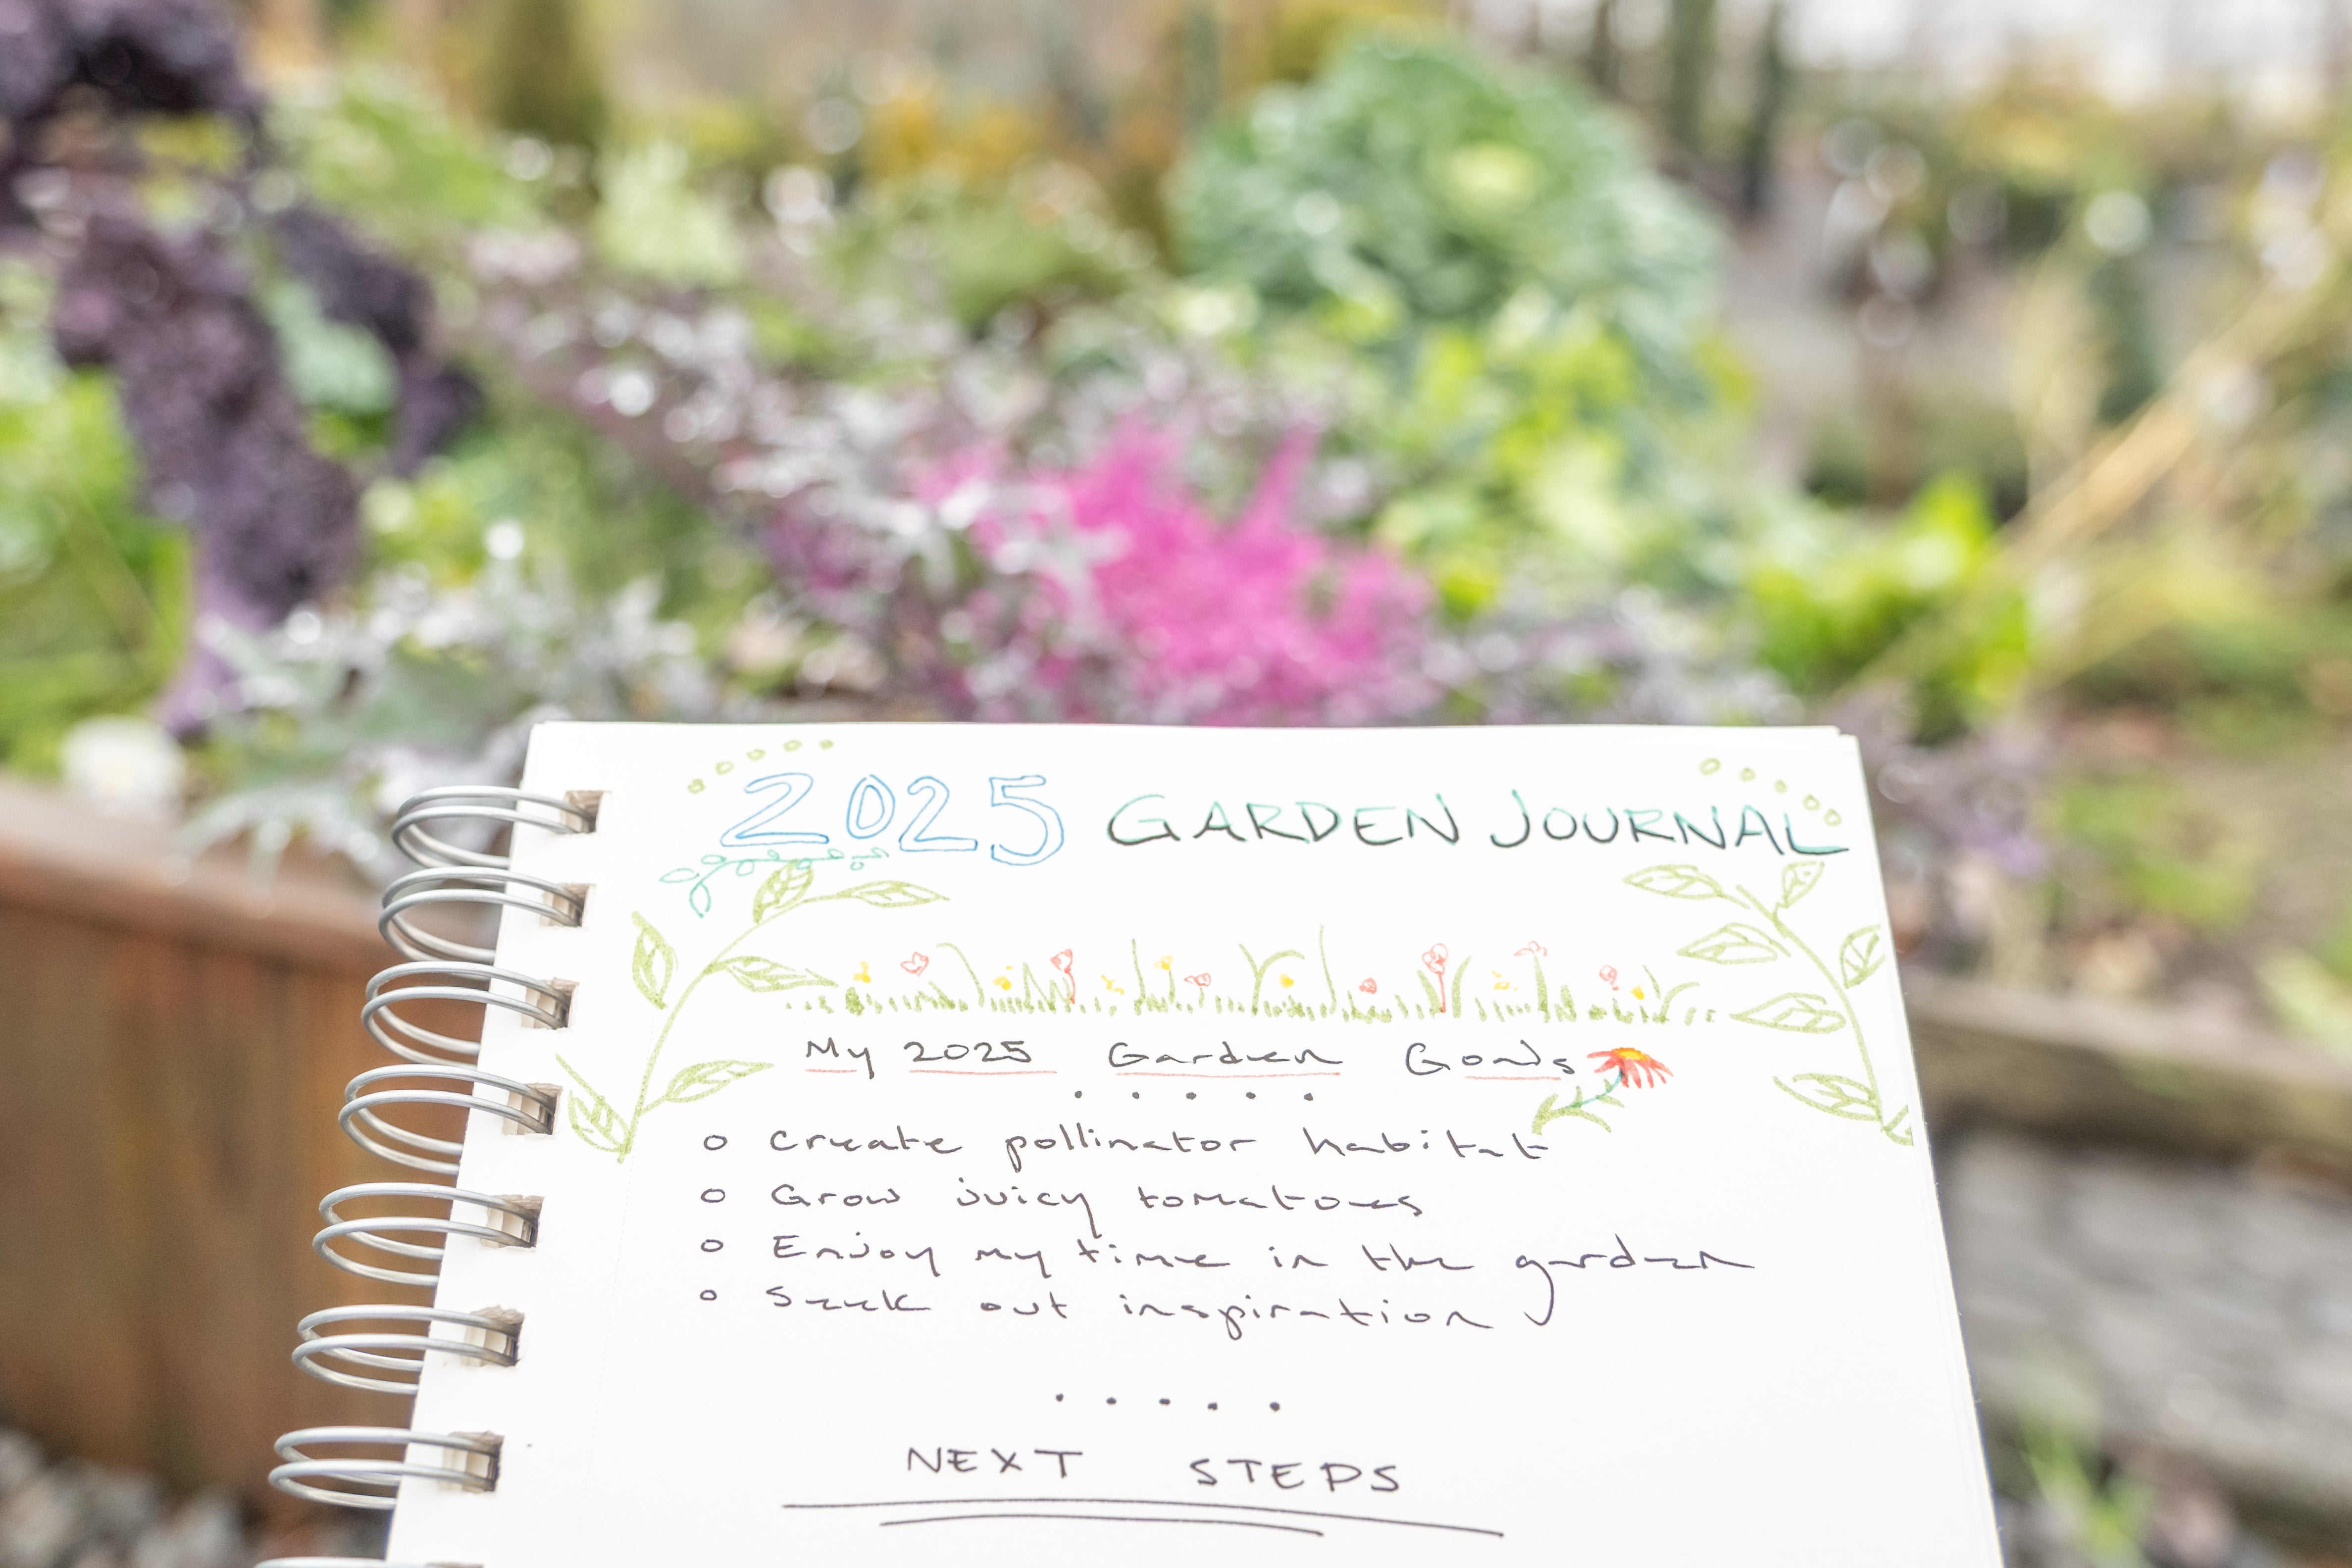 2025 GARDEN JOURNAL
My 2025 Garden Goals
o create pollinator habitat
o Grow juicy tomatoes
o Enjoy my time in the garden
o Seek out inspiration
NEXT STEPS